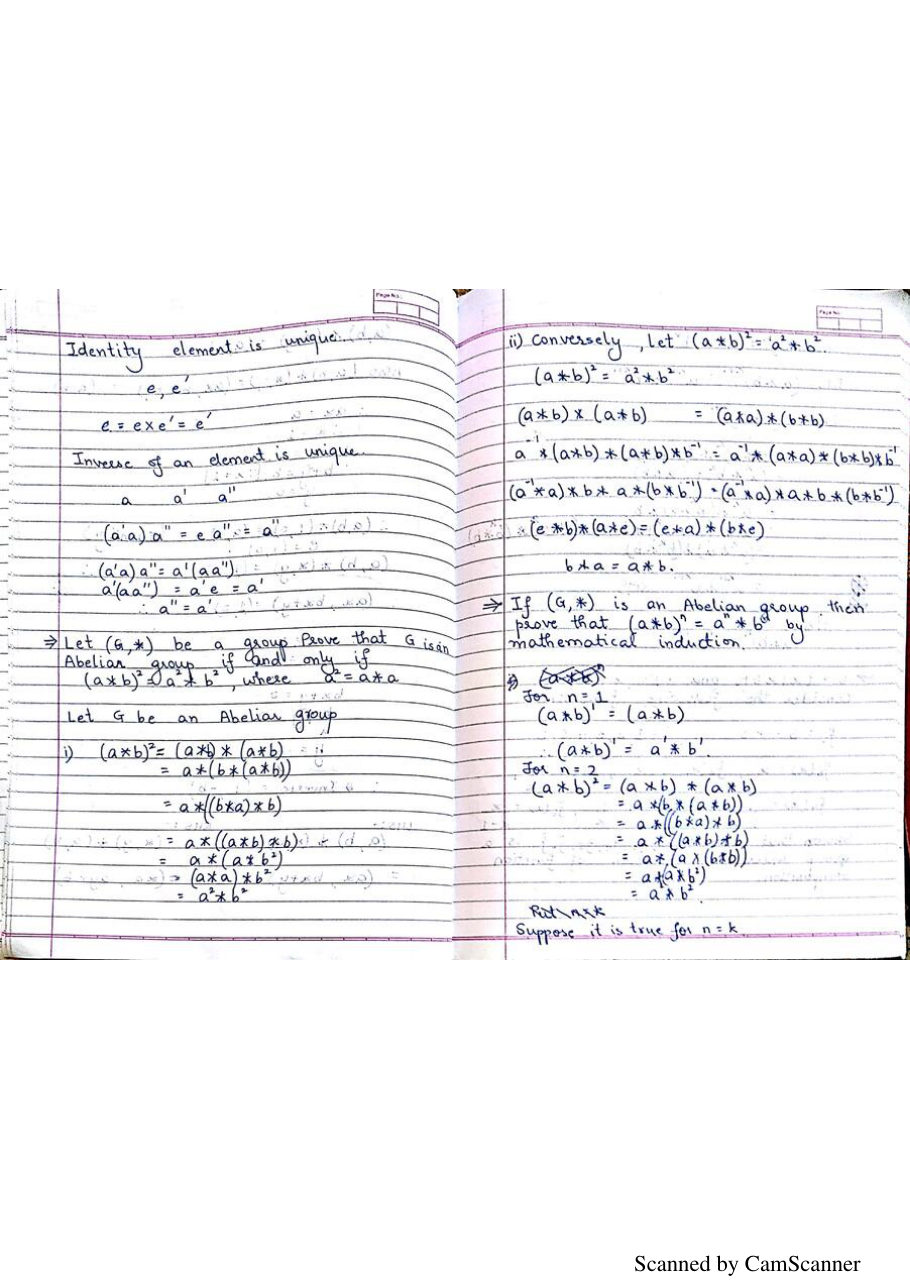 Page No.:
Identity element is unique.
e, e'
e = e×e' = e'
Inverse of an element is unique.
a a' a''
(a'a) a'' = e a'' = a''
∴ (a'a) a'' = a'(aa'')
a'(aa'') = a'e = a'
∴ a'' = a'
⇒ Let (G,*) be a group. Prove that G is an
Abelian group if and only if
(a*b)² = a² * b², where a² = a*a
Let G be an Abelian group
i) (a*b)² = (a*b) * (a*b)
= a*(b*(a*b))
= a*((b*a)*b)
= a*((a*b)*b)
= a*(a*b²)
= (a*a)*b²
= a²*b²
Page No.
ii) Conversely, let (a*b)² = a²*b².
(a*b)² = a²*b²
(a*b) * (a*b) = (a*a)*(b*b)
a⁻¹*(a*b)*(a*b)*b⁻¹ = a⁻¹*(a*a)*(b*b)*b⁻¹
(a⁻¹*a)*b*a*(b*b⁻¹) = (a⁻¹*a)*a*b*(b*b⁻¹)
(e*b)*(a*e) = (e*a)*(b*e)
b*a = a*b.
⇒ If (G,*) is an Abelian group, then
prove that (a*b)ⁿ = aⁿ * bⁿ by
mathematical induction.
For n=1
(a*b)¹ = (a*b)
∴ (a*b)¹ = a¹*b¹.
For n=2
(a*b)² = (a*b) * (a*b)
= a*(b*(a*b))
= a*((b*a)*b)
= a*((a*b)*b)
= a*(a*(b*b))
= a*(a*b²)
= a²*b²
Put n=k
Suppose it is true for n=k.
Scanned by CamScanner